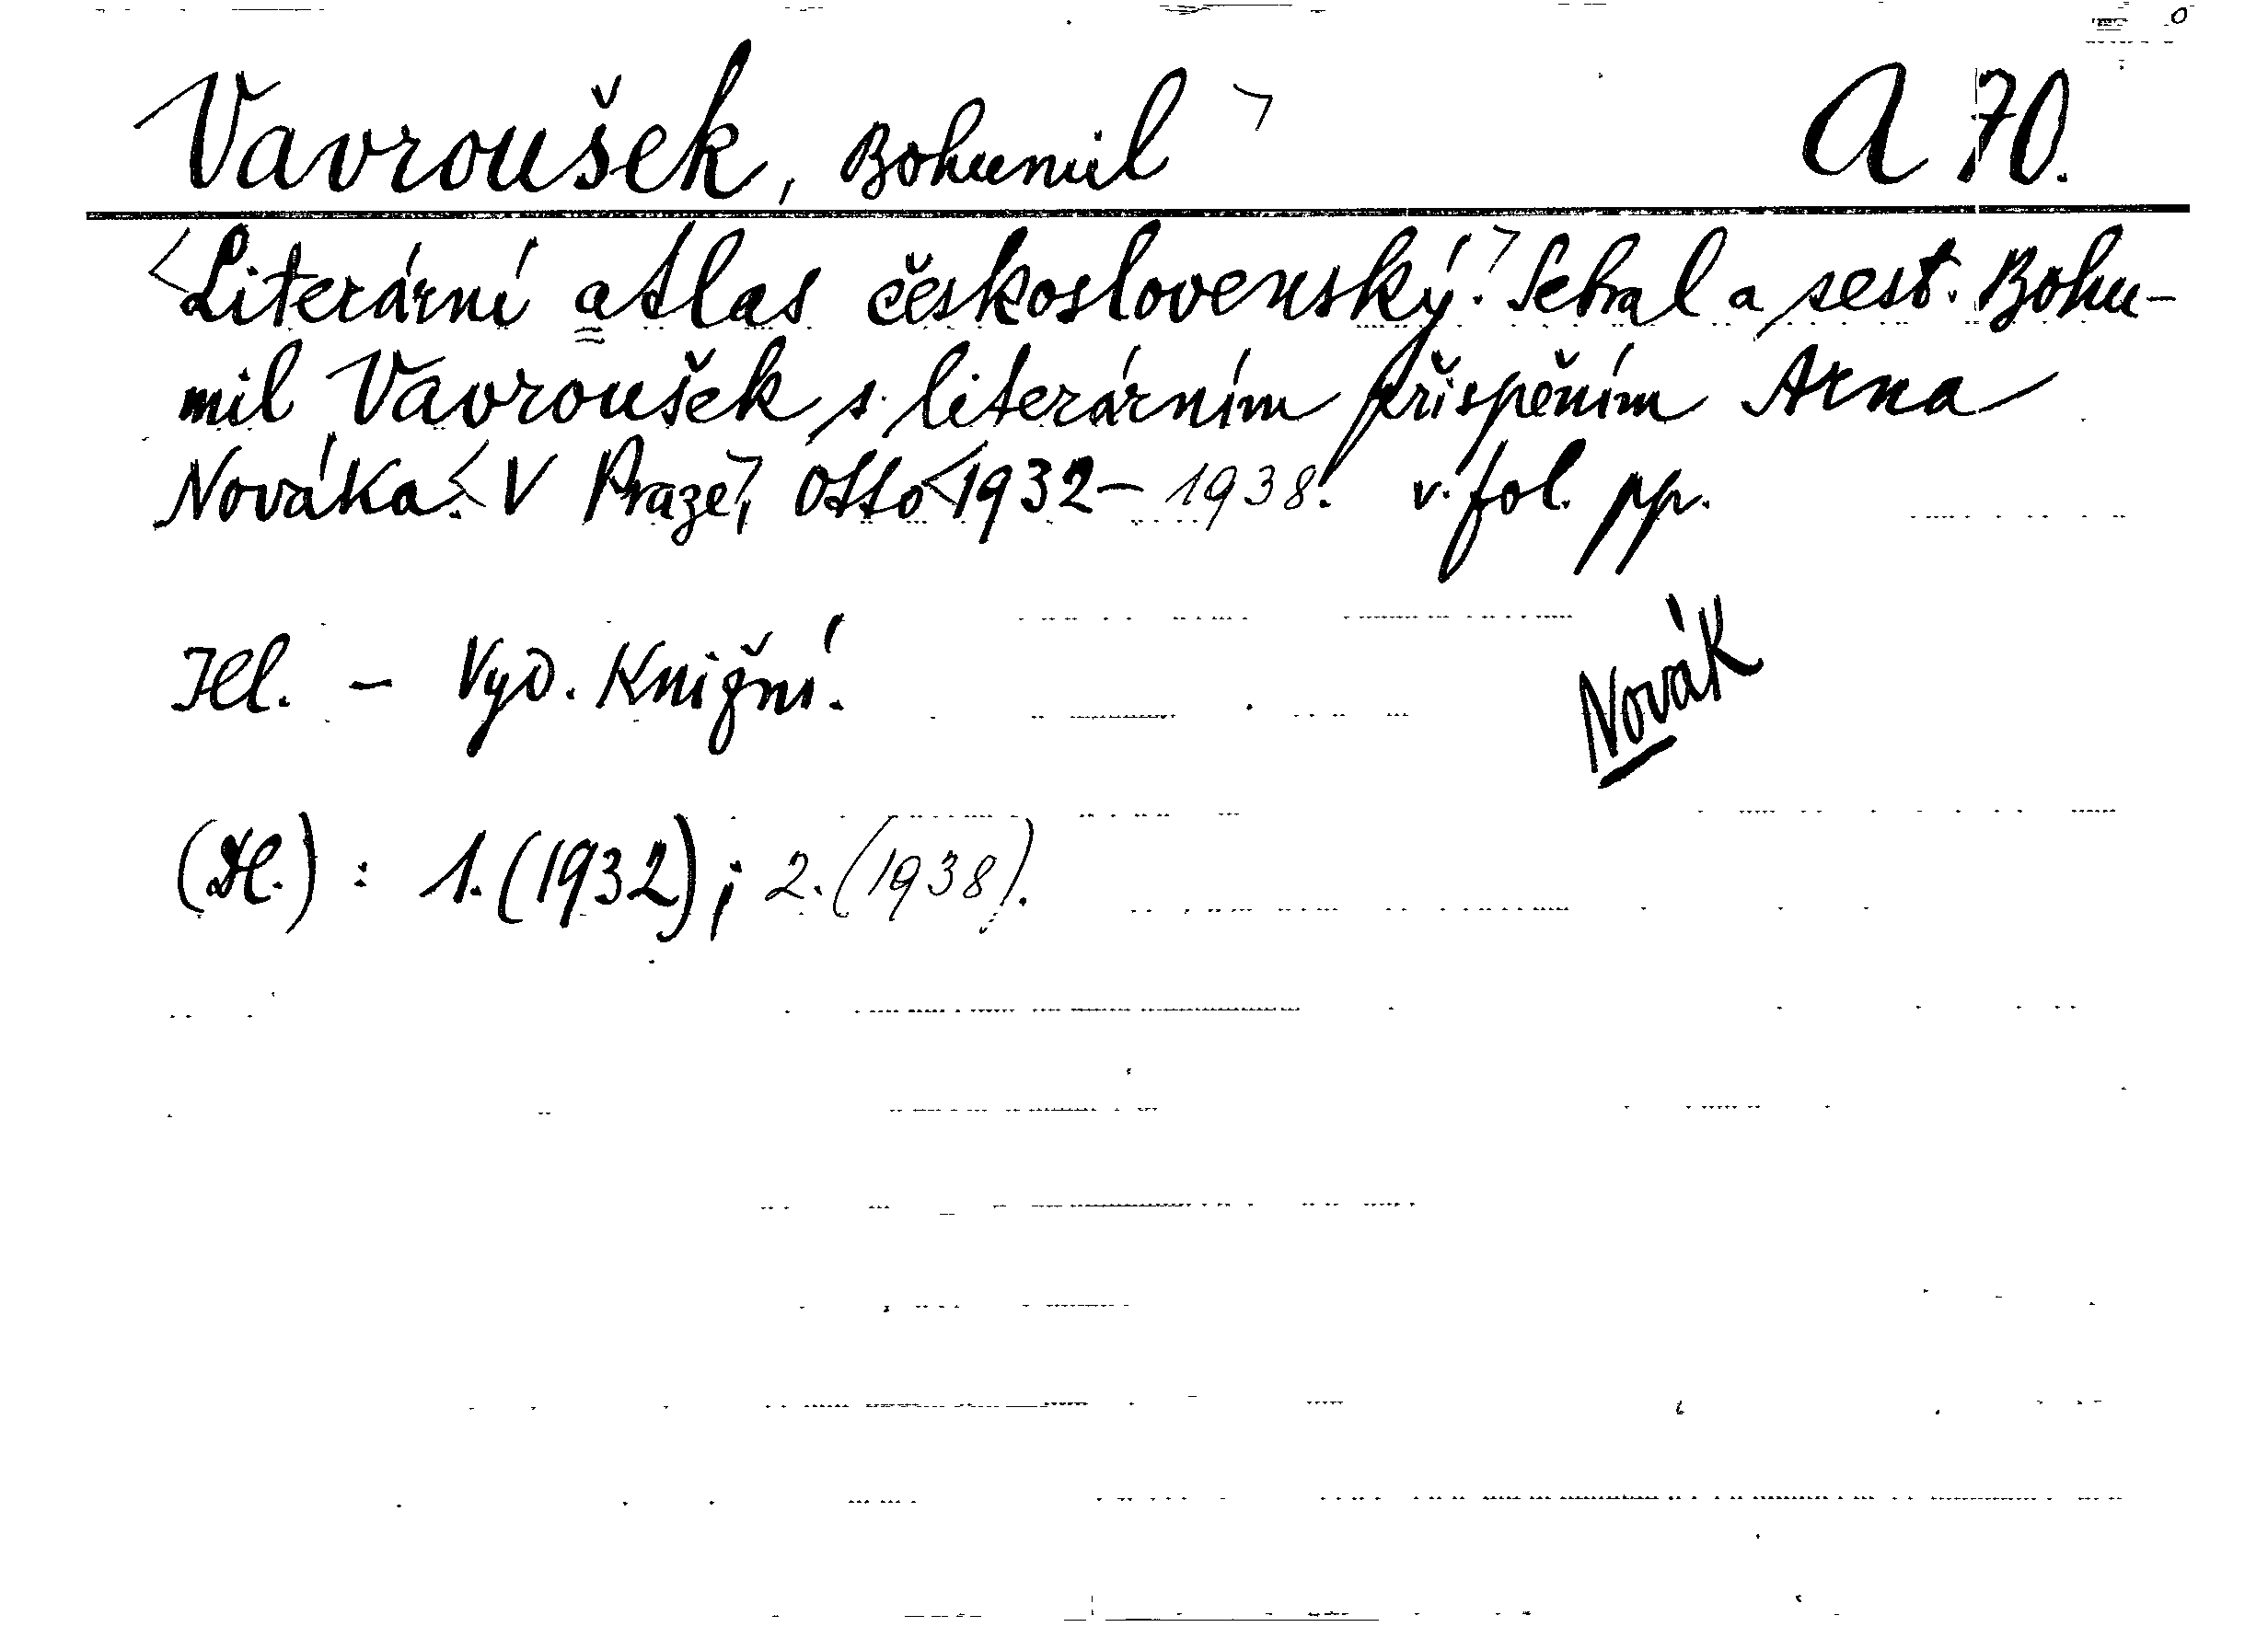 Vavroušek, Bohumil A 70.
Literární atlas československý. Sebral a sest. Bohu-
mil Vavroušek s literárním přispěním Arna
Nováka. V Praze, Otto 1932-1938. v. fol. pp.
Ill. - Vyd. Knižní.
Novák
(Dl.): 1. (1932); 2. (1938).